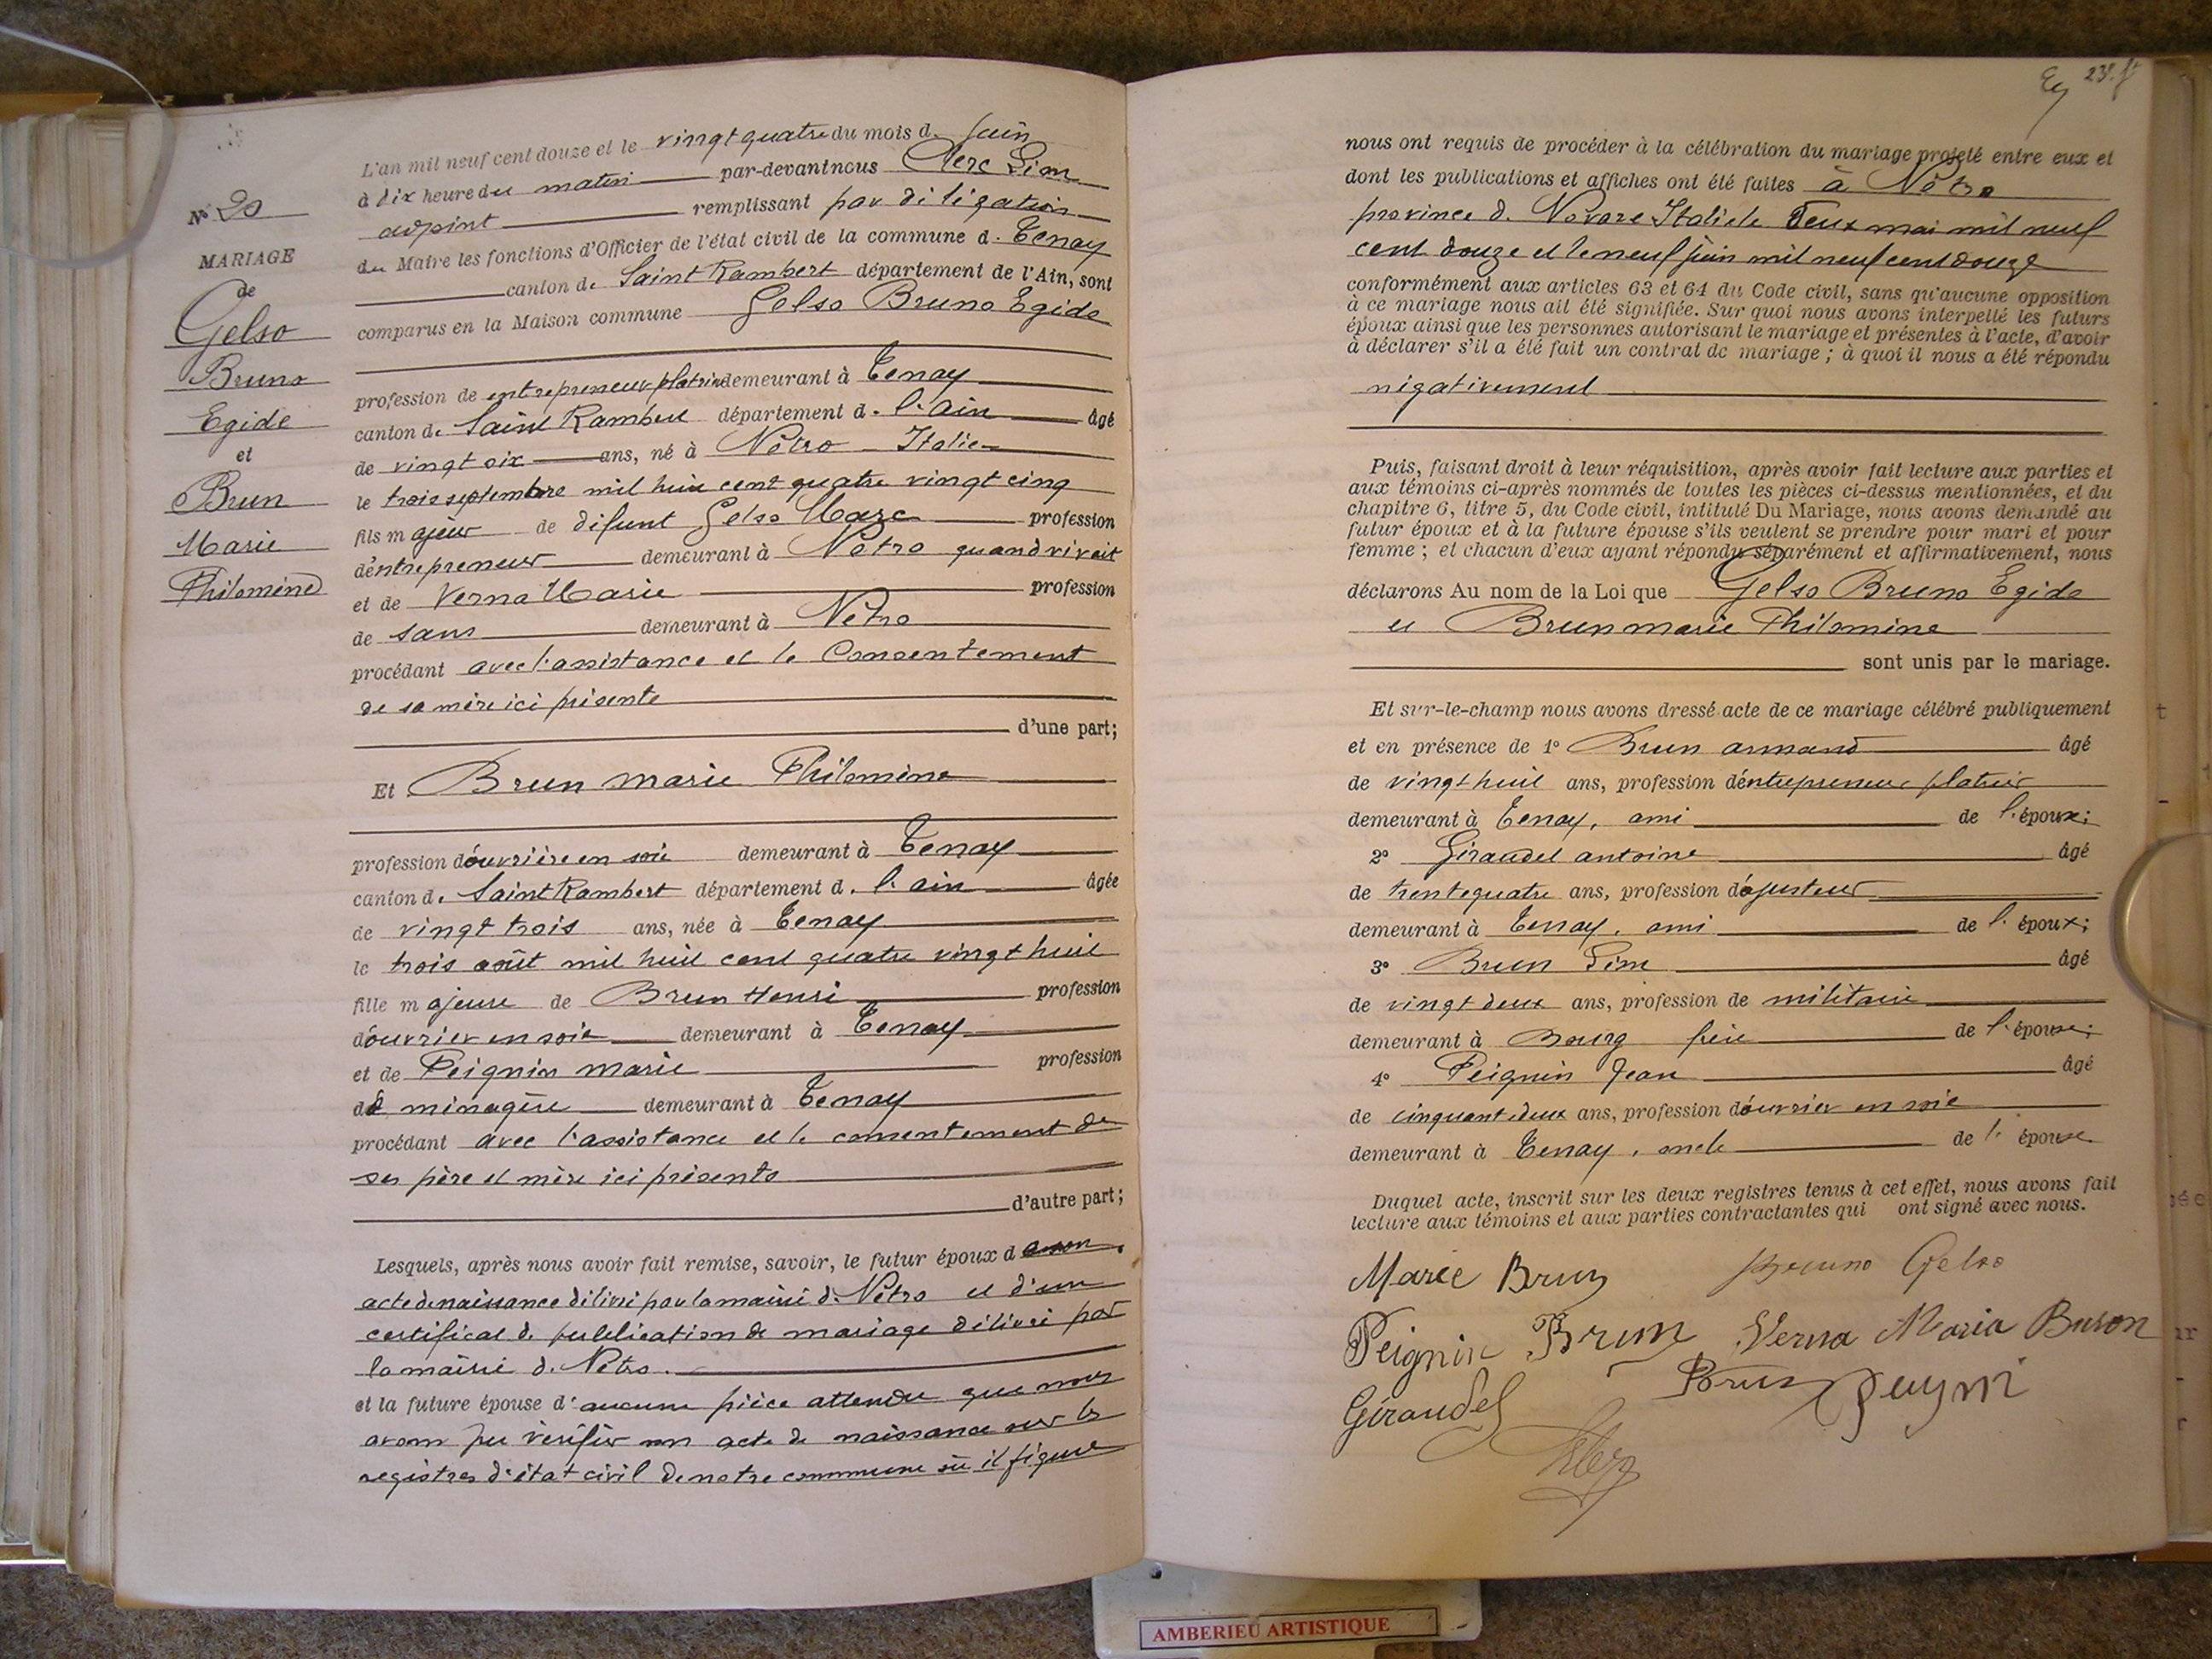 N° 20
MARIAGE
de
Gelso
Bruno
Egide
et
Brun
Marie
Philomène
L'an mil neuf cent douze et le vingt quatre du mois d. Juin
à dix heure du matin par-devant nous Clerc Léon
adjoint remplissant par déligation
du Maire les fonctions d'Officier de l'état civil de la commune d. Tenay
canton d. Saint Rambert département de l'Ain, sont
comparus en la Maison commune Gelso Bruno Egide
profession de entrepreneur platrier demeurant à Tenay
canton d. Saint Rambert département d. l'ain âgé
de vingt six ans, né à Nétro - Italie
le trois septembre mil huit cent quatre vingt cinq
fils majeur de défunt Gelso Marc profession
d'entrepreneur demeurant à Nétro quand vivait
et de Verna Marie profession
de sans demeurant à Nétro
procédant avec l'assistance et le Consentement
de sa mère ici présente
d'une part;
Et Brun marie Philomène
profession d'ouvrière en soie demeurant à Tenay
canton d. Saint Rambert département d. l'ain âgée
de vingt trois ans, née à Tenay
le trois août mil huit cent quatre vingt huit
fille majeure de Brun Henri profession
d'ouvrier en soie demeurant à Tenay
et de Peignin marie profession
de ménagère demeurant à Tenay
procédant avec l'assistance et le consentement de
ses père et mère ici présents
d'autre part;
Lesquels, après nous avoir fait remise, savoir, le futur époux d
acte de naissance délivré par la mairie d. Nétro et d'un
certificat de publication de mariage délivré par
la mairie d. Nétro.
et la future épouse d'aucune pièce attendu que nous
avons pu vérifier son acte de naissance sur les
registres d'état civil de notre commune où il figure
23.
nous ont requis de procéder à la célébration du mariage projeté entre eux et
dont les publications et affiches ont été faites à Nétro
province d. Novare Italie le deux mai mil neuf
cent douze et le neuf juin mil neuf cent douze
conformément aux articles 63 et 64 du Code civil, sans qu'aucune opposition
à ce mariage nous ait été signifiée. Sur quoi nous avons interpellé les futurs
époux ainsi que les personnes autorisant le mariage et présentes à l'acte, d'avoir
à déclarer s'il a été fait un contrat de mariage ; à quoi il nous a été répondu
négativement
Puis, faisant droit à leur réquisition, après avoir fait lecture aux parties et
aux témoins ci-après nommés de toutes les pièces ci-dessus mentionnées, et du
chapitre 6, titre 5, du Code civil, intitulé Du Mariage, nous avons demandé au
futur époux et à la future épouse s'ils veulent se prendre pour mari et pour
femme ; et chacun d'eux ayant répondu séparément et affirmativement, nous
déclarons Au nom de la Loi que Gelso Bruno Egide
et Brun marie Philomène
sont unis par le mariage.
Et sur-le-champ nous avons dressé acte de ce mariage célébré publiquement
et en présence de 1° Brun armand âgé
de vingt huit ans, profession d'entrepreneur platrier
demeurant à Tenay, ami de l'époux;
2° Giraudel antoine âgé
de trente quatre ans, profession d'ajusteur
demeurant à Tenay, ami de l'époux;
3° Brun Léon âgé
de vingt deux ans, profession de militaire
demeurant à Bourg frère de l'épouse;
4° Peignin Jean âgé
de cinquant deux ans, profession d'ouvrier en soie
demeurant à Tenay, oncle de l'épouse
Duquel acte, inscrit sur les deux registres tenus à cet effet, nous avons fait
lecture aux témoins et aux parties contractantes qui ont signé avec nous.
Marie Brun Bruno Gelso
Peignin Brun Verna Maria Buson
Giraudel Brun
AMBERIEU ARTISTIQUE